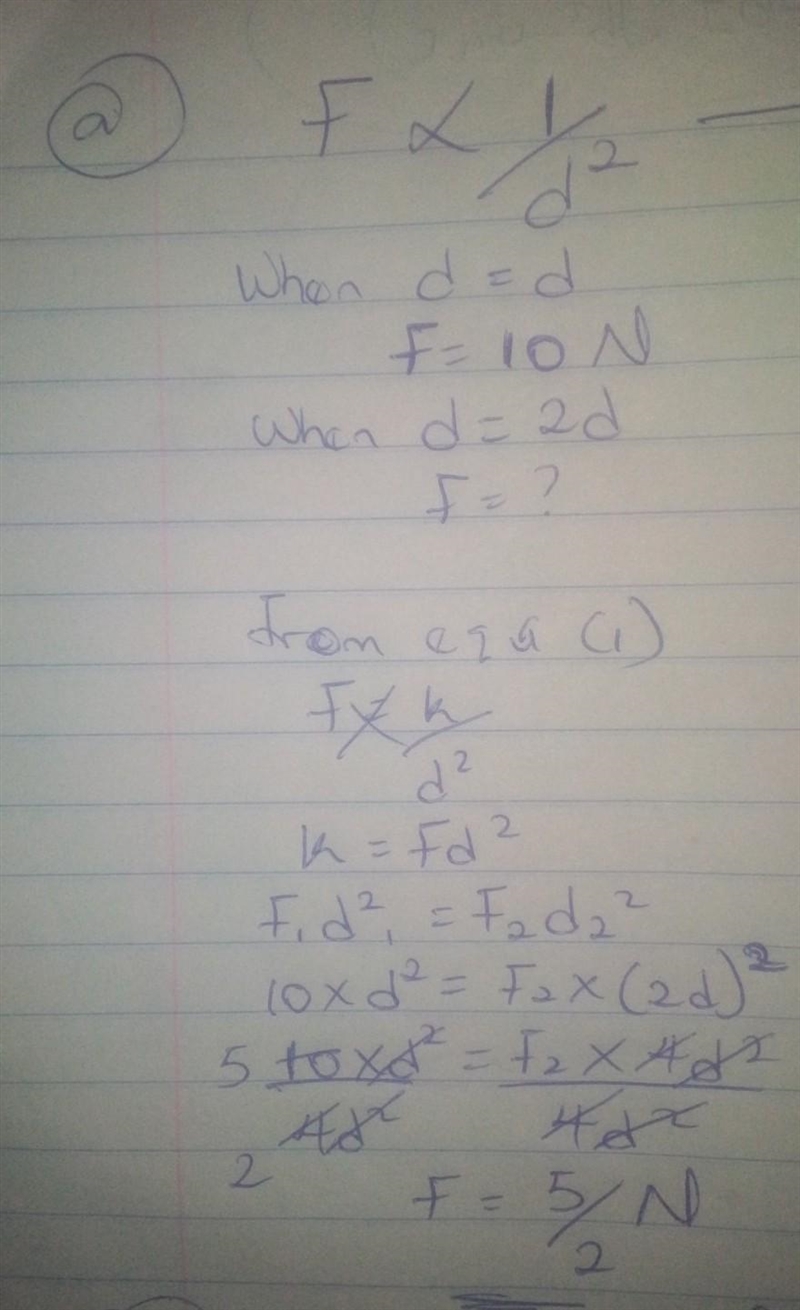 (a) F ∝ 1/d² —
When d = d
F = 10 N
When d = 2d
F = ?
From eqn (1)
F = k/d²
k = Fd²
F₁d²₁ = F₂d₂²
10 × d² = F₂ × (2d)²
5 10 × d² = F₂ × 4d²
2 4d² 4d²
F = 5/2 N